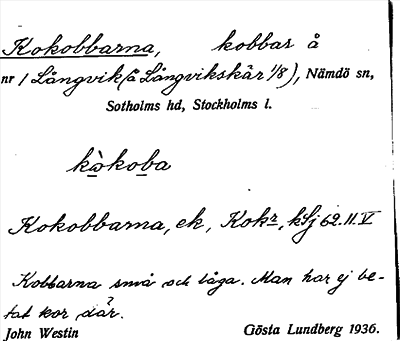 Kokobbarna, kobbar å
nr 1 Långvik (å Långvikskär 1/8), Nämdö sn,
Sotholms hd, Stockholms l.
kòkoba
Kokobbarna, ek, Kokr, kSj 62.II.V
Kobbarna små och låga. Man har ej be-
tat kor där.
John Westin Gösta Lundberg 1936.